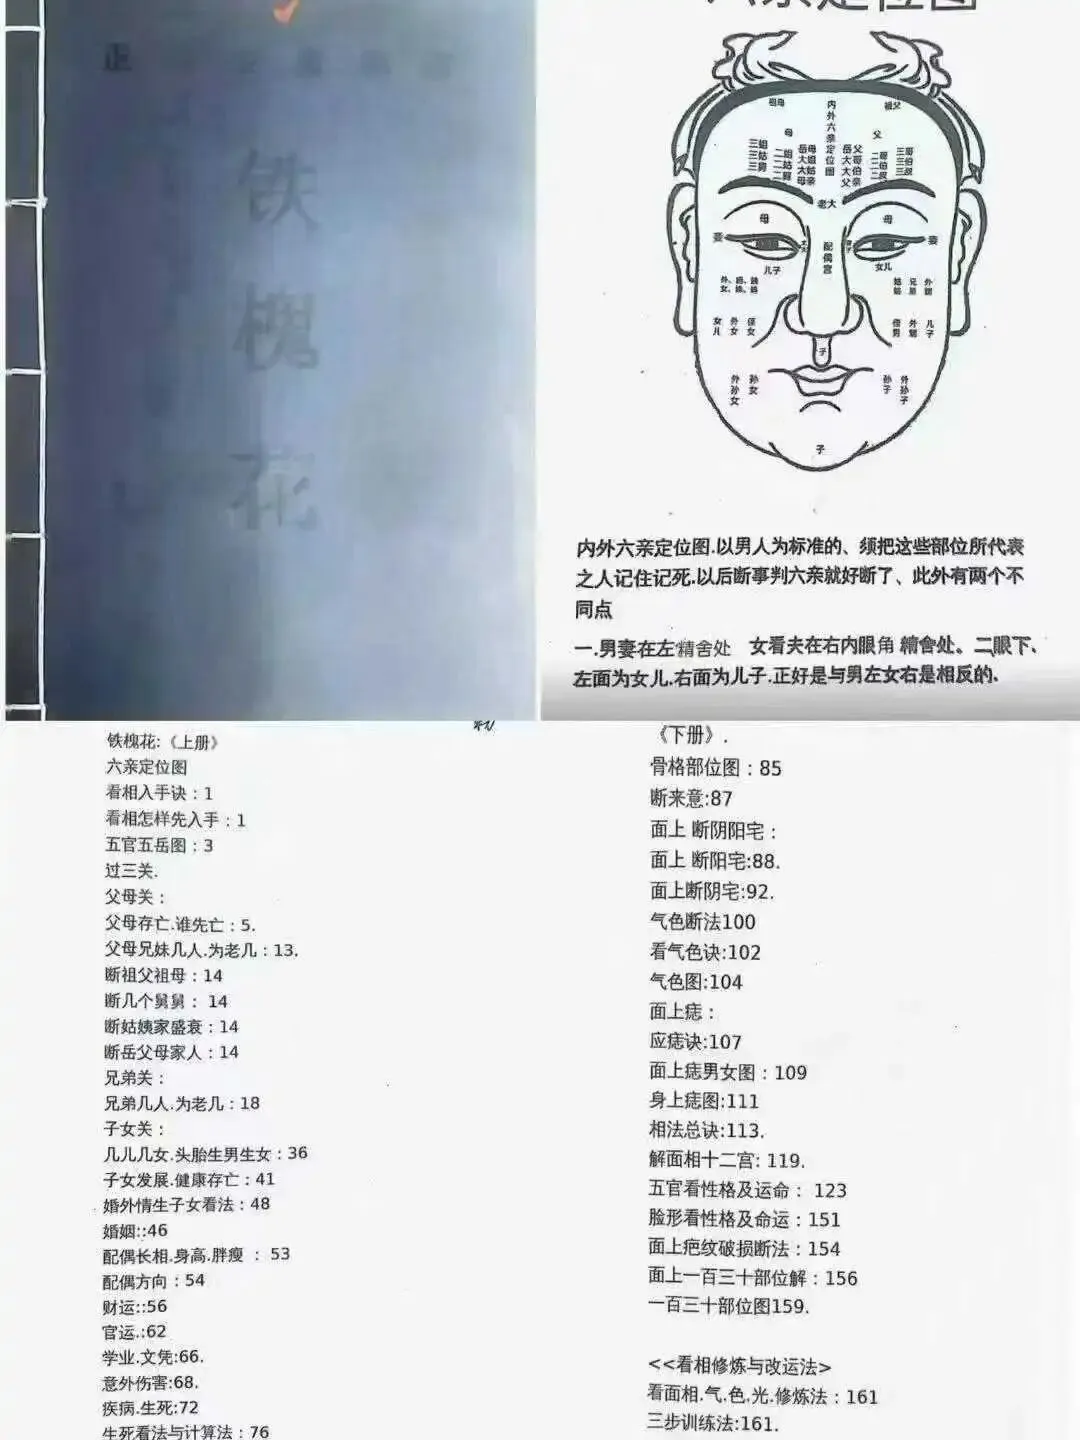 正
铁
槐
花
六亲定位图
祖母
祖父
内外六亲定位图
母
父
老大
母
母
妻
妻
配偶宫
儿子
女儿
女儿
外女
侄女
侄男
外甥
儿子
子
外孙女
孙女
孙子
外孙子
子
内外六亲定位图.以男人为标准的、须把这些部位所代表
之人记住记死.以后断事判六亲就好断了、此外有两个不
同点
一.男妻在左精舍处 女看夫在右内眼角 精舍处。二眼下、
左面为女儿.右面为儿子.正好是与男左女右是相反的.
铁槐花:《上册》
六亲定位图
看相入手诀：1
看相怎样先入手：1
五官五岳图：3
过三关.
父母关：
父母存亡.谁先亡：5.
父母兄妹几人.为老几：13.
断祖父祖母：14
断几个舅舅： 14
断姑姨家盛衰：14
断岳父母家人：14
兄弟关：
兄弟几人.为老几：18
子女关：
几儿几女.头胎生男生女：36
子女发展.健康存亡：41
婚外情生子女看法：48
婚姻::46
配偶长相.身高.胖瘦 ： 53
配偶方向：54
财运::56
官运.:62
学业.文凭:66.
意外伤害:68.
疾病.生死:72
生死看法与计算法：76
《下册》.
骨格部位图：85
断来意:87
面上 断阴阳宅：
面上 断阳宅:88.
面上断阴宅:92.
气色断法100
看气色诀:102
气色图:104
面上痣：
应痣诀:107
面上痣男女图：109
身上痣图:111
相法总诀:113.
解面相十二宫: 119.
五官看性格及运命： 123
脸形看性格及命运：151
面上疤纹破损断法：154
面上一百三十部位解：156
一百三十部位图159.
<<看相修炼与改运法>
看面相.气.色.光.修炼法：161
三步训练法:161.